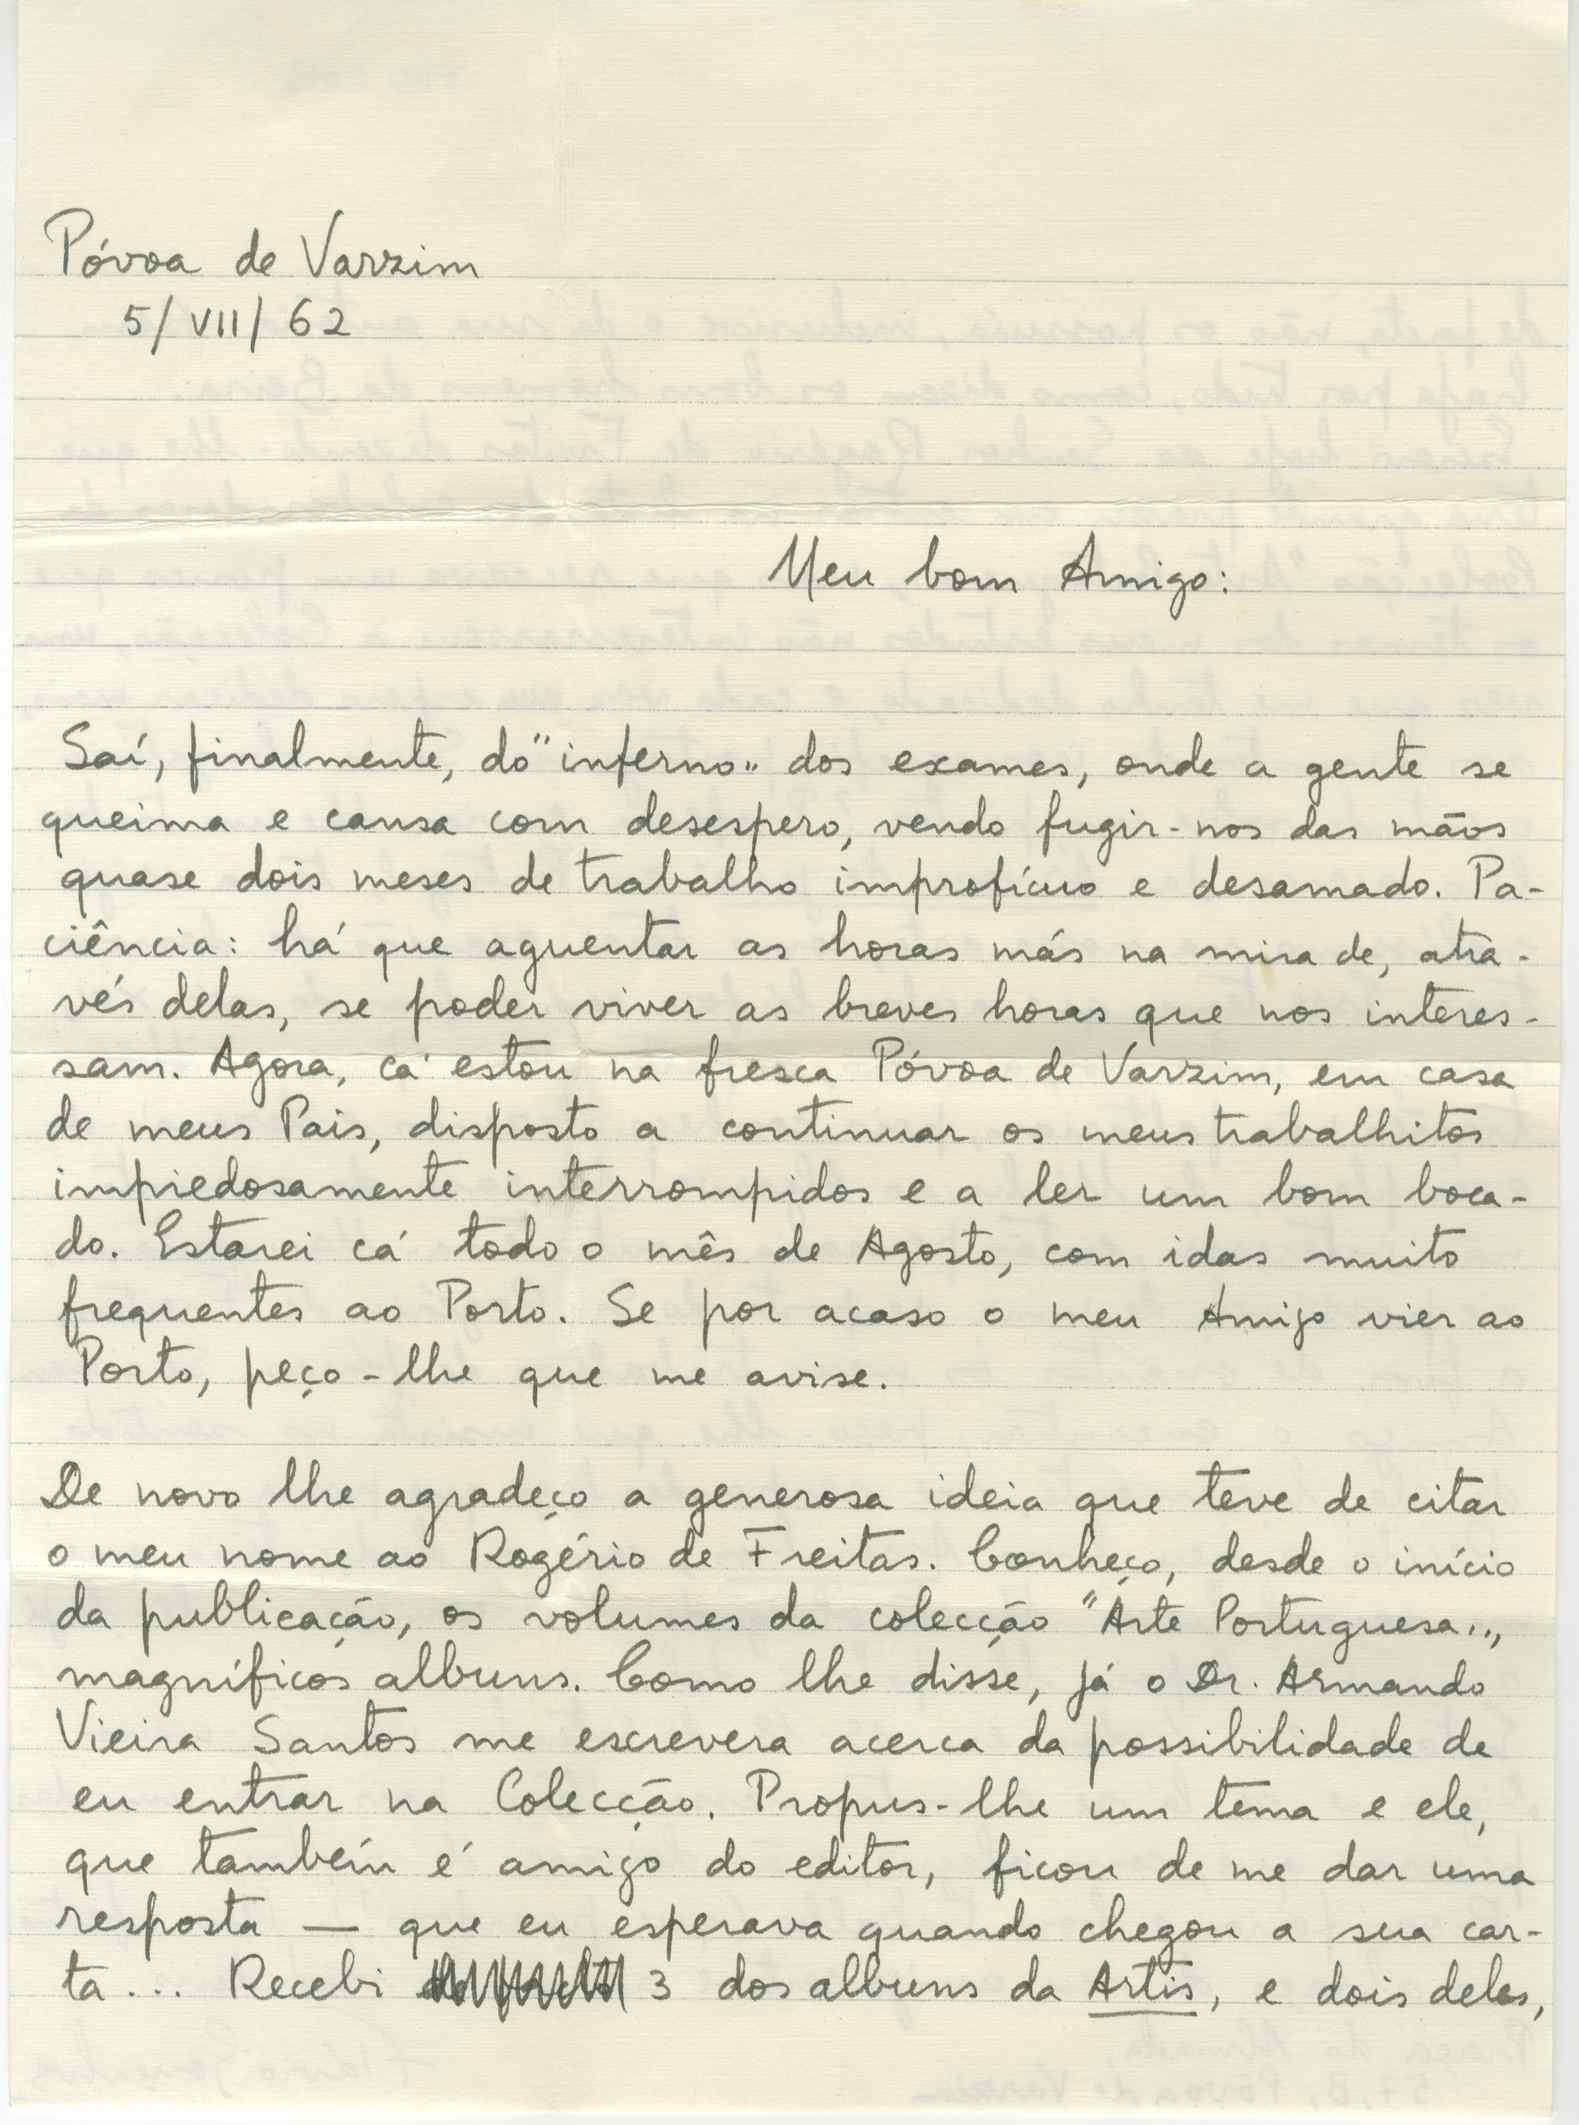 Póvoa de Varzim
5/VII/62
Meu bom Amigo:
Saí, finalmente, do "inferno" dos exames, onde a gente se
queima e cansa com desespero, vendo fugir-nos das mãos
quase dois meses de trabalho improfícuo e desamado. Pa-
ciência: há que aguentar as horas más na mira de, atra-
vés delas, se poder viver as breves horas que nos interes-
sam. Agora, cá estou na fresca Póvoa de Varzim, em casa
de meus Pais, disposto a continuar os meus trabalhitos
impiedosamente interrompidos e a ler um bom boca-
do. Estarei cá todo o mês de Agosto, com idas muito
frequentes ao Porto. Se por acaso o meu Amigo vier ao
Porto, peço-lhe que me avise.
De novo lhe agradeço a generosa ideia que teve de citar
o meu nome ao Rogério de Freitas. Conheço, desde o início
da publicação, os volumes da colecção "Arte Portuguesa",
magníficos albuns. Como lhe disse, já o Dr. Armando
Vieira Santos me escrevera acerca da possibilidade de
eu entrar na Colecção. Propus-lhe um tema e ele,
que também é amigo do editor, ficou de me dar uma
resposta — que eu esperava quando chegou a sua car-
ta... Recebi 3 dos albuns da Artis, e dois deles,